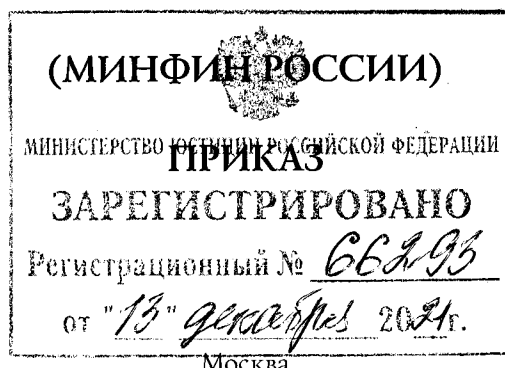 (МИНФИН РОССИИ)
МИНИСТЕРСТВО ЮСТИЦИИ РОССИЙСКОЙ ФЕДЕРАЦИИ
ПРИКАЗ
ЗАРЕГИСТРИРОВАНО
Регистрационный № 66293
от "13" декабря 2021г.
Москва